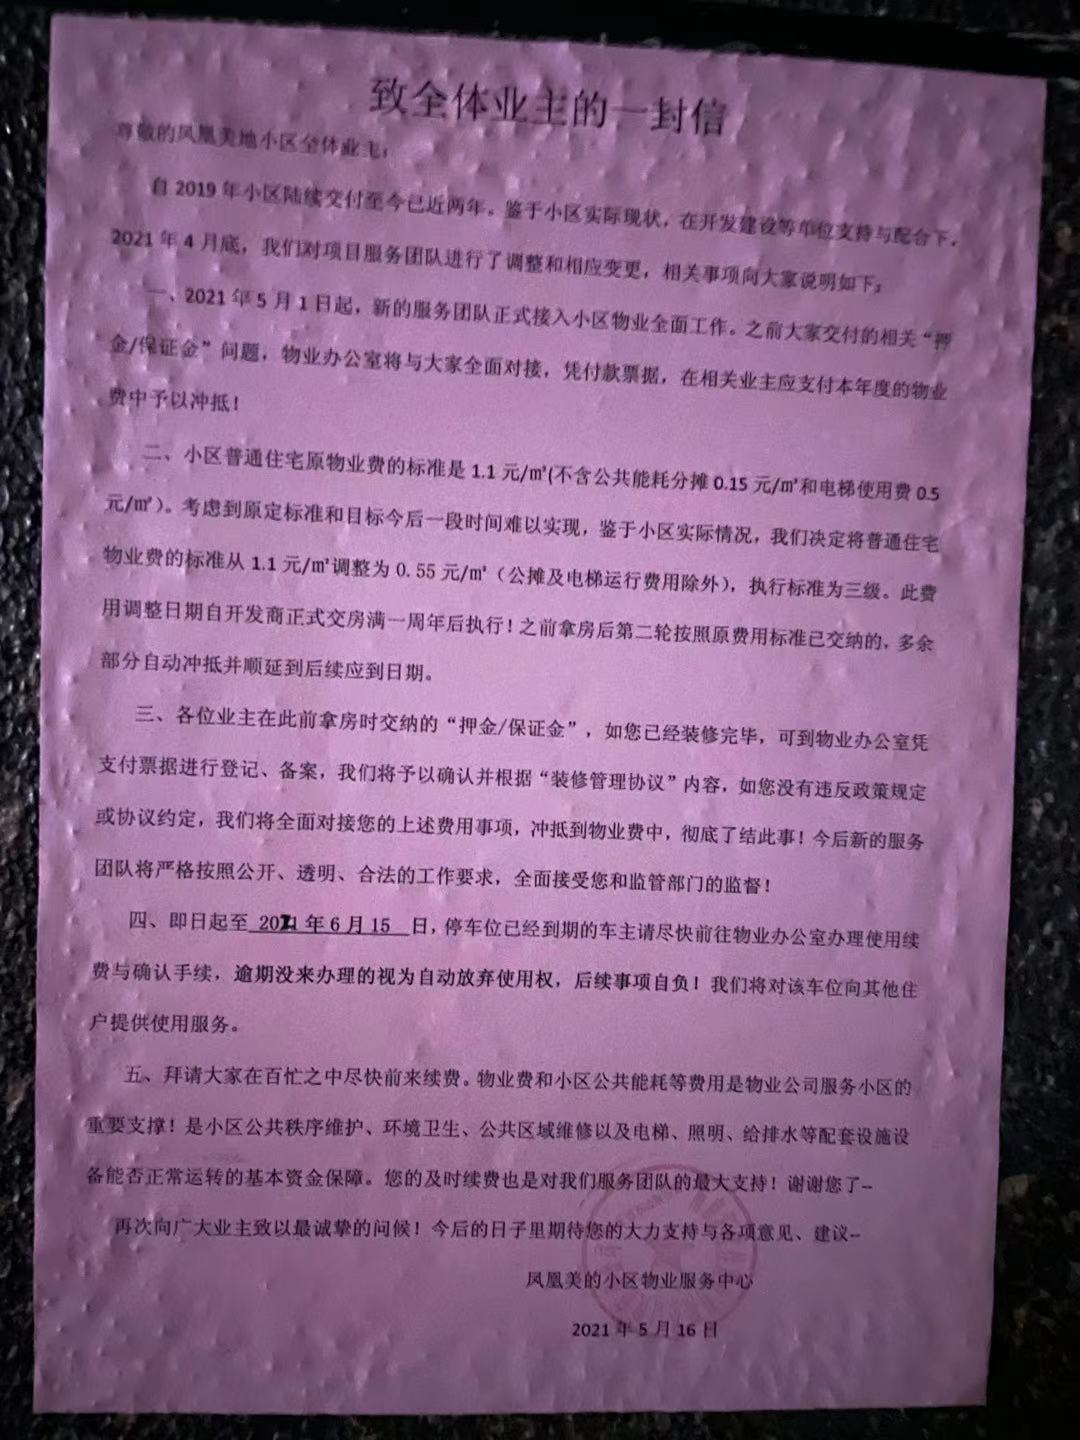 致全体业主的一封信
尊敬的凤凰美地小区全体业主：
自2019年小区陆续交付至今已近两年。鉴于小区实际现状，在开发建设等单位支持与配合下，
2021年4月底，我们对项目服务团队进行了调整和相应变更，相关事项向大家说明如下：
一、2021年5月1日起，新的服务团队正式接入小区物业全面工作。之前大家交付的相关“押
金/保证金”问题，物业办公室将与大家全面对接，凭付款票据，在相关业主应支付本年度的物业
费中予以冲抵！
二、小区普通住宅原物业费的标准是1.1元/㎡(不含公共能耗分摊0.15元/㎡和电梯使用费0.5
元/㎡)。考虑到原定标准和目标今后一段时间难以实现，鉴于小区实际情况，我们决定将普通住宅
物业费的标准从1.1元/㎡调整为0.55元/㎡（公摊及电梯运行费用除外），执行标准为三级。此费
用调整日期自开发商正式交房满一周年后执行！之前拿房后第二轮按照原费用标准已交纳的，多余
部分自动冲抵并顺延到后续应到日期。
三、各位业主在此前拿房时交纳的“押金/保证金”，如您已经装修完毕，可到物业办公室凭
支付票据进行登记、备案，我们将予以确认并根据“装修管理协议”内容，如您没有违反政策规定
或协议约定，我们将全面对接您的上述费用事项，冲抵到物业费中，彻底了结此事！今后新的服务
团队将严格按照公开、透明、合法的工作要求，全面接受您和监管部门的监督！
四、即日起至 2021年6月15 日，停车位已经到期的车主请尽快前往物业办公室办理使用续
费与确认手续，逾期没来办理的视为自动放弃使用权，后续事项自负！我们将对该车位向其他住
户提供使用服务。
五、拜请大家在百忙之中尽快前来续费。物业费和小区公共能耗等费用是物业公司服务小区的
重要支撑！是小区公共秩序维护、环境卫生、公共区域维修以及电梯、照明、给排水等配套设施设
备能否正常运转的基本资金保障。您的及时续费也是对我们服务团队的最大支持！谢谢您了--
再次向广大业主致以最诚挚的问候！今后的日子里期待您的大力支持与各项意见、建议--
凤凰美的小区物业服务中心
2021年5月16日